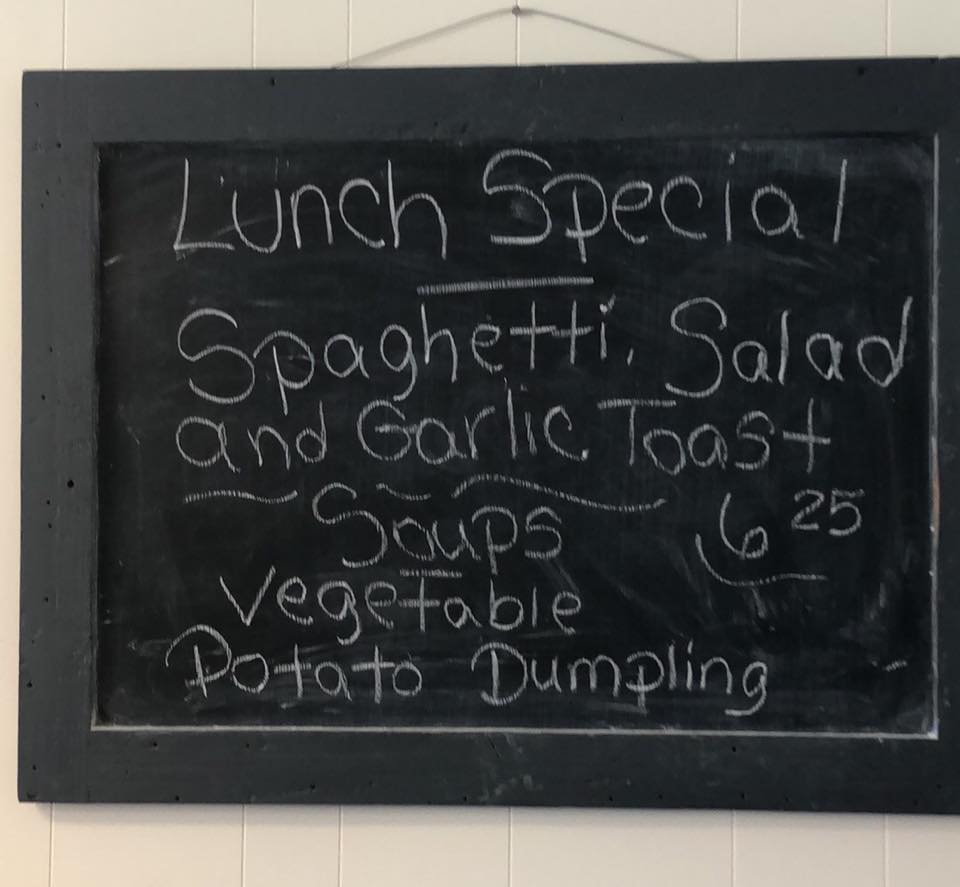 Lunch Special
Spaghetti, Salad
and Garlic Toast
6 25
Soups
Vegetable
Potato Dumpling